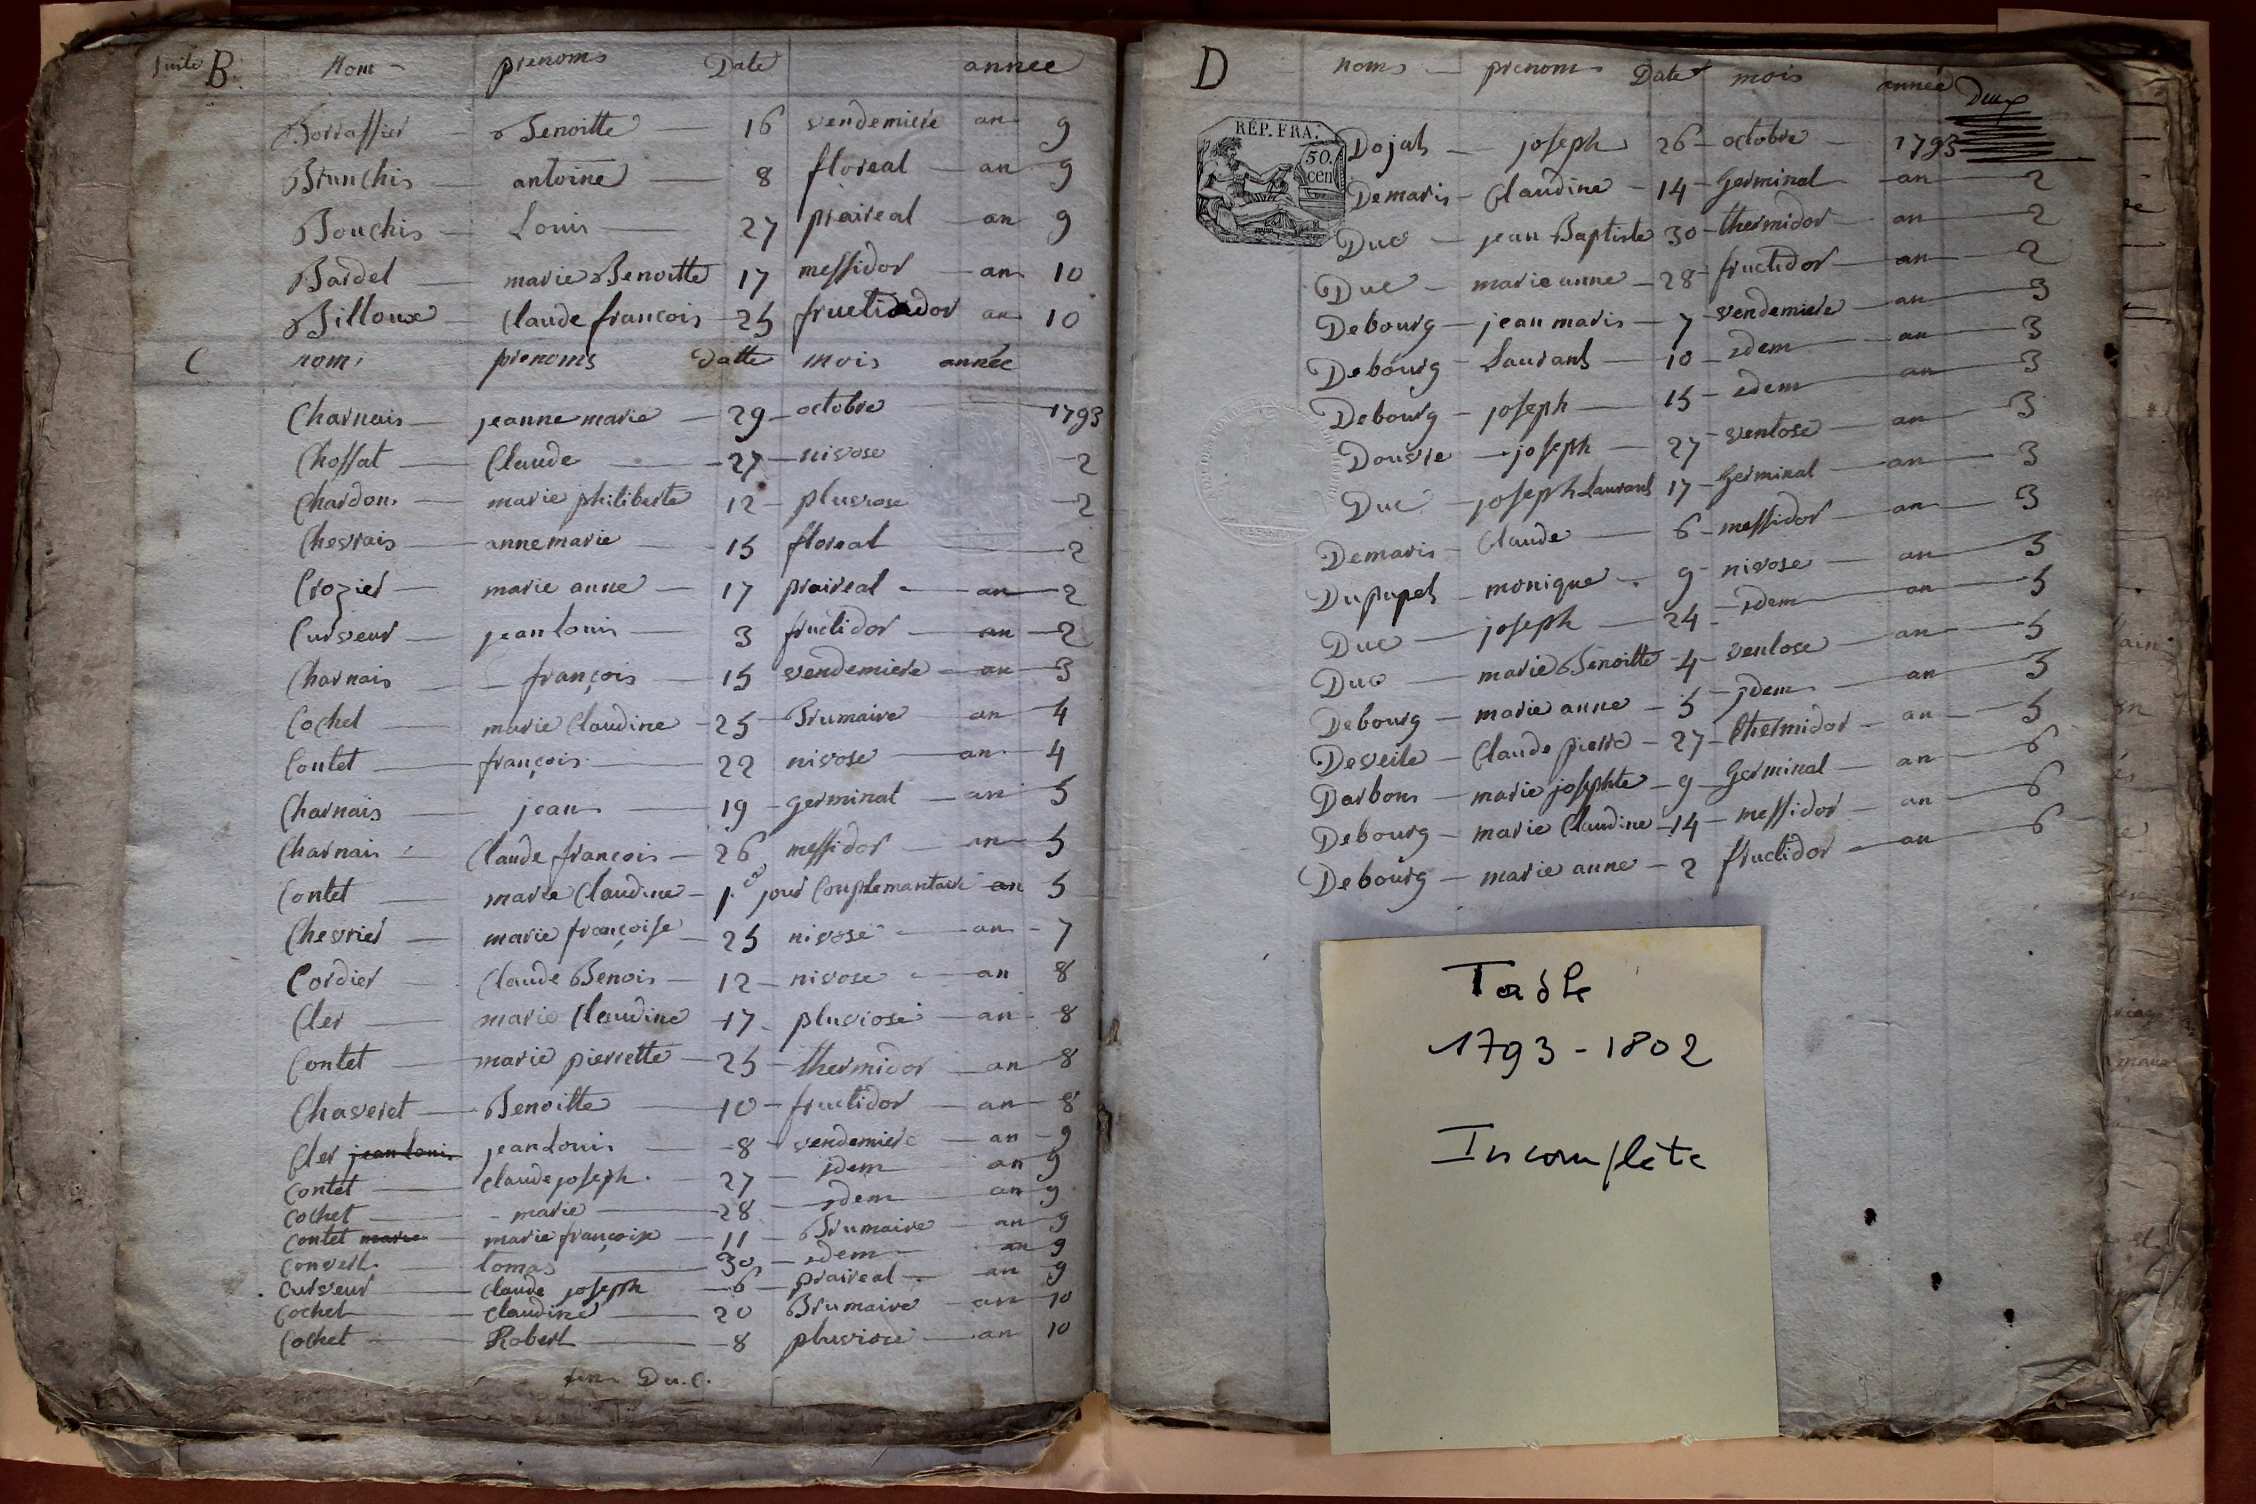 Suite B. Nom prenoms Date année
Borraffier Benoitte 16 vendemiere an 9
Brunchis antoine 8 floreal an 9
Bouchis Louis 27 praireal an 9
Bardel marie Benoitte 17 messidor an 10
Billoux Claude francois 25 fructidor an 10
C nom prenoms Datte mois année
Charnais jeanne marie 29 octobre 1793
Chossat Claude 27 nivose 2
Chardon marie philiberte 12 pluviose 2
Chevrais anne marie 15 floreal 2
Crozier marie anne 17 praireal an 2
Curveur jean louis 3 fructidor an 2
Charnais françois 15 vendemiere an 3
Cochet marie Claudine 25 Brumaire an 4
Contet françois 22 nivose an 4
Charnais jean 19 germinal an 5
Charnais Claude françois 26 messidor an 5
Contet marie Claudine 1e jour Couplemantaire an 5
Chevrier marie françoise 25 nivose an 7
Cordier Claude Benois 12 nivose an 8
Cler marie Claudine 17 pluviose an 8
Contet marie pierrette 25 thermidor an 8
Chaveret Benoitte 10 fructidor an 8
Cler jean louis jean louis 8 vendemiere an 9
Contet claude joseph 27 idem an 9
Cochet marie 28 idem an 9
Contet marie marie françoise 11 Brumaire an 9
Convert tomas 30 idem an 9
Curveur Claude joseph 6 praireal an 9
Cochet Claudine 20 Brumaire an 10
Cochet Robert 8 pluviose an 10
fin Du. C.
D noms prenoms Date mois année
Deux
RÉP. FRA.
50.
cen
Dojat joseph 26 octobre 1793
Demaris Claudine 14 Germinal an 2
Duc jean Baptiste 30 thermidor an 2
Duc marie anne 28 fructidor an 2
Debourg jean maris 7 vendemiere an 3
Debourg Laurant 10 idem an 3
Debourg joseph 15 idem an 3
Douvre joseph 27 ventose an 3
Duc joseph Laurant 17 Germinal an 3
Demaris Claude 6 messidor an 3
Dupupet monique 9 nivose an 5
Duc joseph 24 idem an 5
Duc marie Benoitte 4 ventose an 5
Debourg marie anne 5 idem an 5
Deveile Claude pierre 27 thermidor an 5
Darbon marie josephte 9 Germinal an 6
Debourg marie Claudine 14 messidor an 6
Debourg marie anne 2 fructidor an 6
Table
1793-1802
Incomplète